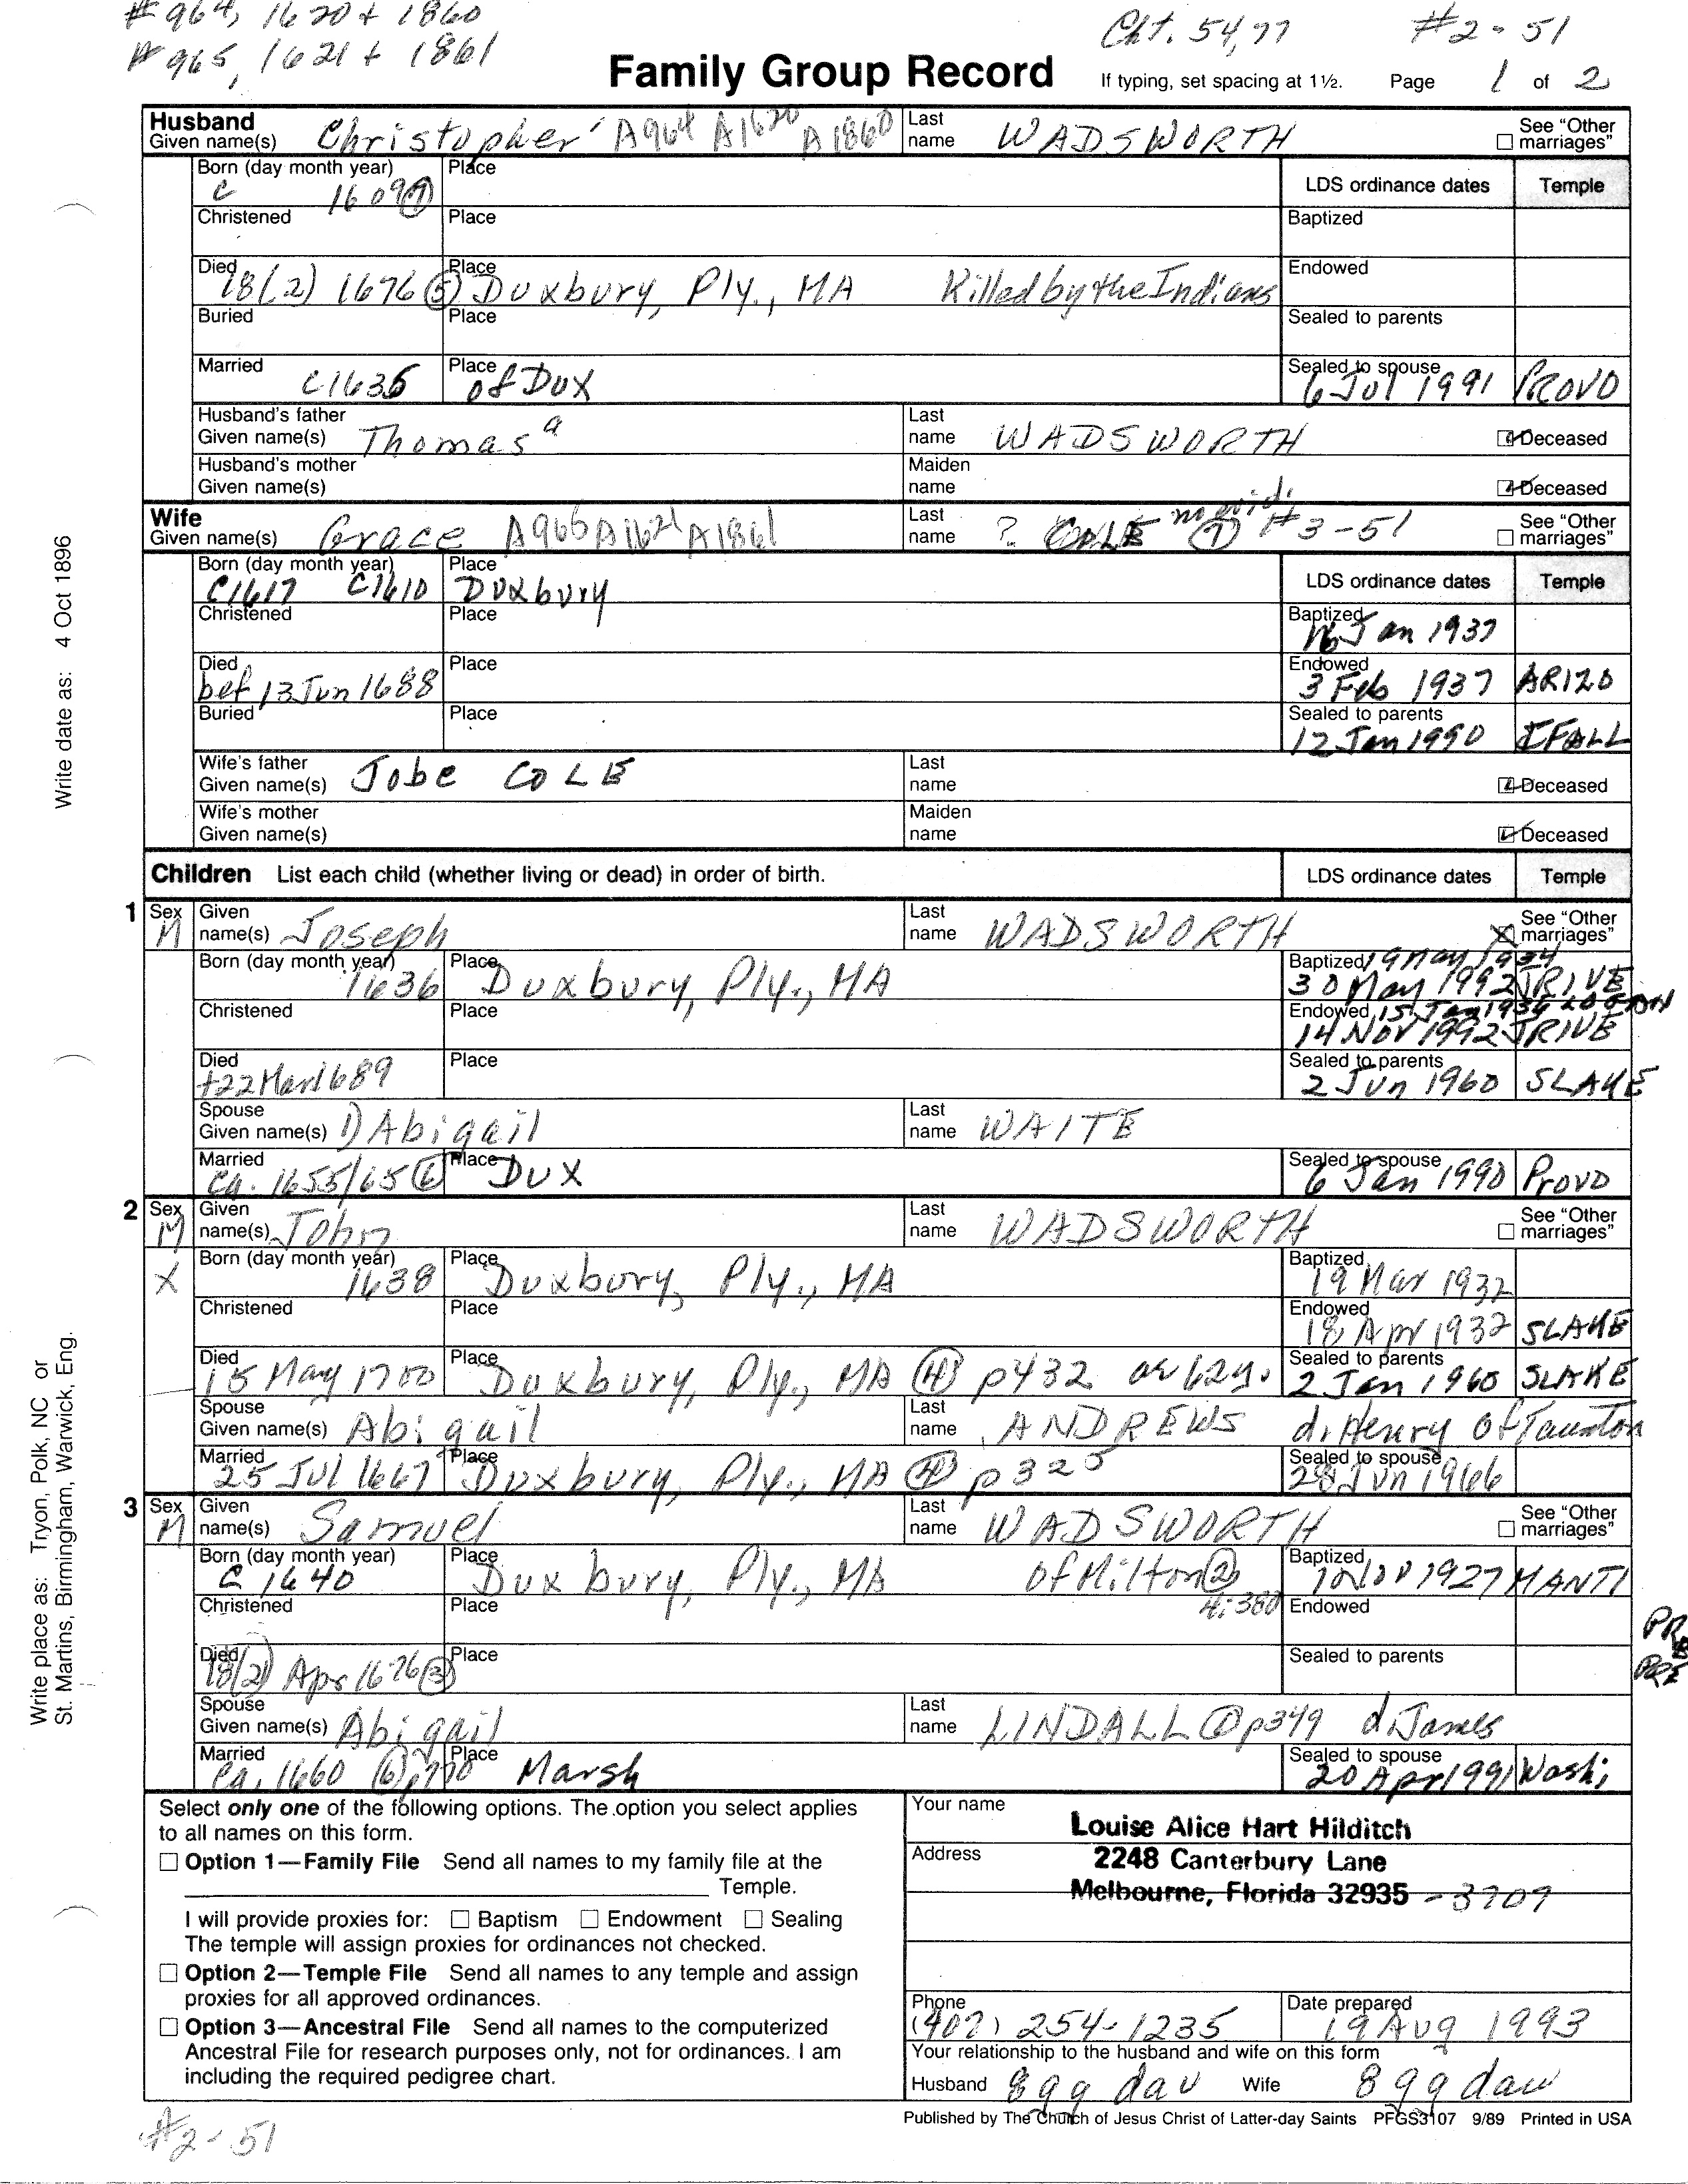 # 964, 1620 + 1860
# 965, 1621 + 1861
Cht. 54, 77 #2-51
Family Group Record If typing, set spacing at 1½. Page 1 of 2
Husband
Given name(s) Christopher A964 A1620 A1860 Last name WADSWORTH See "Other marriages"
Born (day month year) c 1609 (7) Place
LDS ordinance dates Temple
Christened Place Baptized
Died 18(2) 1676 (5) Place Duxbury, Ply., MA Killed by the Indians Endowed
Buried Place Sealed to parents
Married C1635 Place of DUX Sealed to spouse 6 Jul 1991 PROVO
Husband's father
Given name(s) Thomas a Last name WADSWORTH Deceased
Husband's mother
Given name(s) Maiden name Deceased
Wife
Given name(s) Grace A965 A1621 A1861 Last name ? COLE no evid. (7) #3-51 See "Other marriages"
Born (day month year) C1617 C1610 Place Duxbury
LDS ordinance dates Temple
Christened Place Baptized 16 Jan 1937
Died bef 13 Jun 1688 Place Endowed 3 Feb 1937 ARIZO
Buried Place Sealed to parents 12 Jan 1990 IFALL
Wife's father
Given name(s) Jobe COLE Last name Deceased
Wife's mother
Given name(s) Maiden name Deceased
Children List each child (whether living or dead) in order of birth. LDS ordinance dates Temple
1 Sex M Given name(s) Joseph Last name WADSWORTH See "Other marriages"
Born (day month year) 1636 Place Duxbury, Ply., MA Baptized 19 May 1934
30 May 1992 JRIVE
Christened Place Endowed 15 Jan 1936 LOGAN
14 Nov 1992 JRIVE
Died +22 Mar 1689 Place Sealed to parents 2 Jun 1960 SLAKE
Spouse
Given name(s) 1) Abigail Last name WAITE
Married Ca. 1655/65 (6) Place DUX Sealed to spouse 6 Jan 1990 Provo
2 Sex M Given name(s) John Last name WADSWORTH See "Other marriages"
X Born (day month year) 1638 Place Duxbury, Ply., MA Baptized 19 Mar 1932
Christened Place Endowed 18 Apr 1932 SLAKE
Died 15 May 1700 Place Duxbury, Ply., MA (4) p432 ae 62y. Sealed to parents 2 Jan 1960 SLAKE
Spouse
Given name(s) Abigail Last name ANDREWS d. Henry of Taunton
Married 25 Jul 1667 Place Duxbury, Ply., MA (4) p325 Sealed to spouse 28 Jun 1966
3 Sex M Given name(s) Samuel Last name WADSWORTH See "Other marriages"
Born (day month year) C 1640 Place Duxbury, Ply., MA of Milton (2) Baptized 1927 MANTI
Christened Place 4:380 Endowed
Died 18(21) Apr 1676 (3) Place Sealed to parents
Spouse
Given name(s) Abigail Last name LINDALL p349 d. James
Married Ca. 1660 (6) p770 Place Marsh Sealed to spouse 20 Apr 1991 Wash;
Select only one of the following options. The option you select applies
to all names on this form.
Option 1—Family File Send all names to my family file at the
Temple.
I will provide proxies for: Baptism Endowment Sealing
The temple will assign proxies for ordinances not checked.
Option 2—Temple File Send all names to any temple and assign
proxies for all approved ordinances.
Option 3—Ancestral File Send all names to the computerized
Ancestral File for research purposes only, not for ordinances. I am
including the required pedigree chart.
Your name Louise Alice Hart Hilditch
Address 2248 Canterbury Lane
Melbourne, Florida 32935 -3707
Phone (407) 254-1235 Date prepared 19 Aug 1993
Your relationship to the husband and wife on this form
Husband 8 gg dau Wife 8 gg dau
Published by The Church of Jesus Christ of Latter-day Saints PFGS3107 9/89 Printed in USA
#2-51
Write date as: 4 Oct 1896
Write place as: Tryon, Polk, NC or
St. Martins, Birmingham, Warwick, Eng.